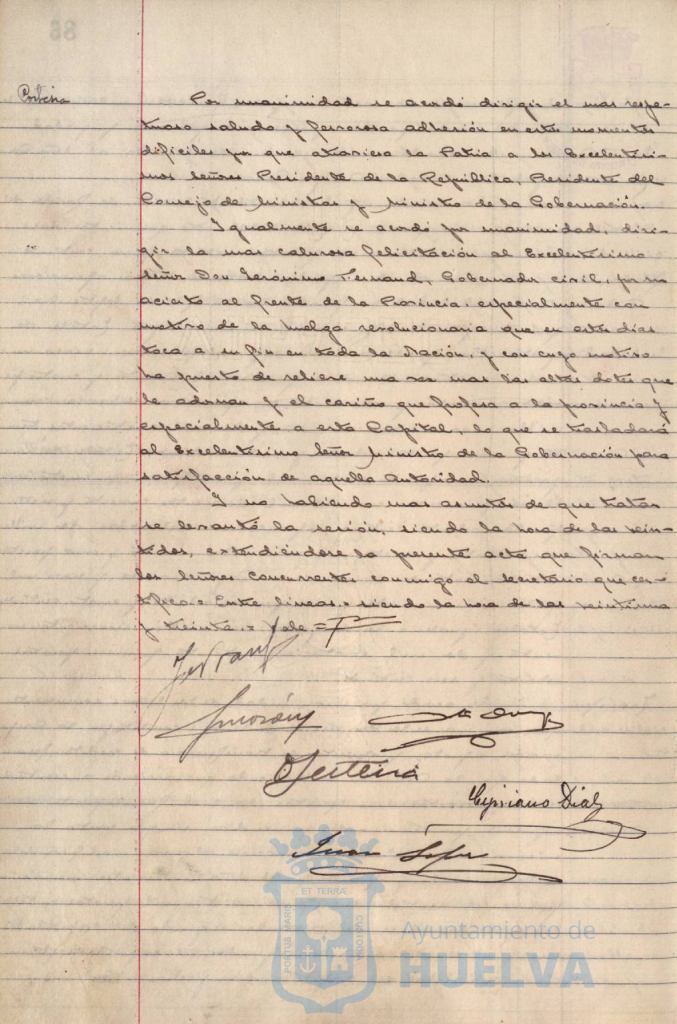 Por unanimidad se acordó dirigir el mas respe-
tuoso saludo y fervorosa adhesión en estos momentos
dificiles por que atraviesa la Patria a los Excelentisi-
mos Señores Presidente de la República, Presidente del
Consejo de Ministros y Ministro de la Gobernación.
Igualmente se acordó por unanimidad, diri-
gir la mas calurosa felicitación al Excelentisimo
Señor Don Jerónimo Fernaud, Gobernador civil, por su
acierto al frente de la Provincia, especialmente con
motivo de la huelga revolucionaria que en estos dias
toca a su fin en toda la Nación, y con cuyo motivo
ha puesto de relieve una vez mas las altas dotes que
le adornan y el cariño que profesa a la provincia y
especialmente a esta Capital, lo que se trasladará
al Excelentisimo Señor Ministro de la Gobernación para
satisfacción de aquella Autoridad.
Y no habiendo mas asuntos de que tratar
se levantó la sesión, siendo la hora de las vein-
tidos, extendiéndose la presente acta que firman
los Señores concurrentes conmigo el secretario que cer-
tifico.= Entre lineas.= siendo la hora de las veintiuna
y treinta.= Vale.=
Cipriano Diaz
Juan
ET TERRÆ
PORTUS MARIS
CUSTODIA
Ayuntamiento de
HUELVA
86